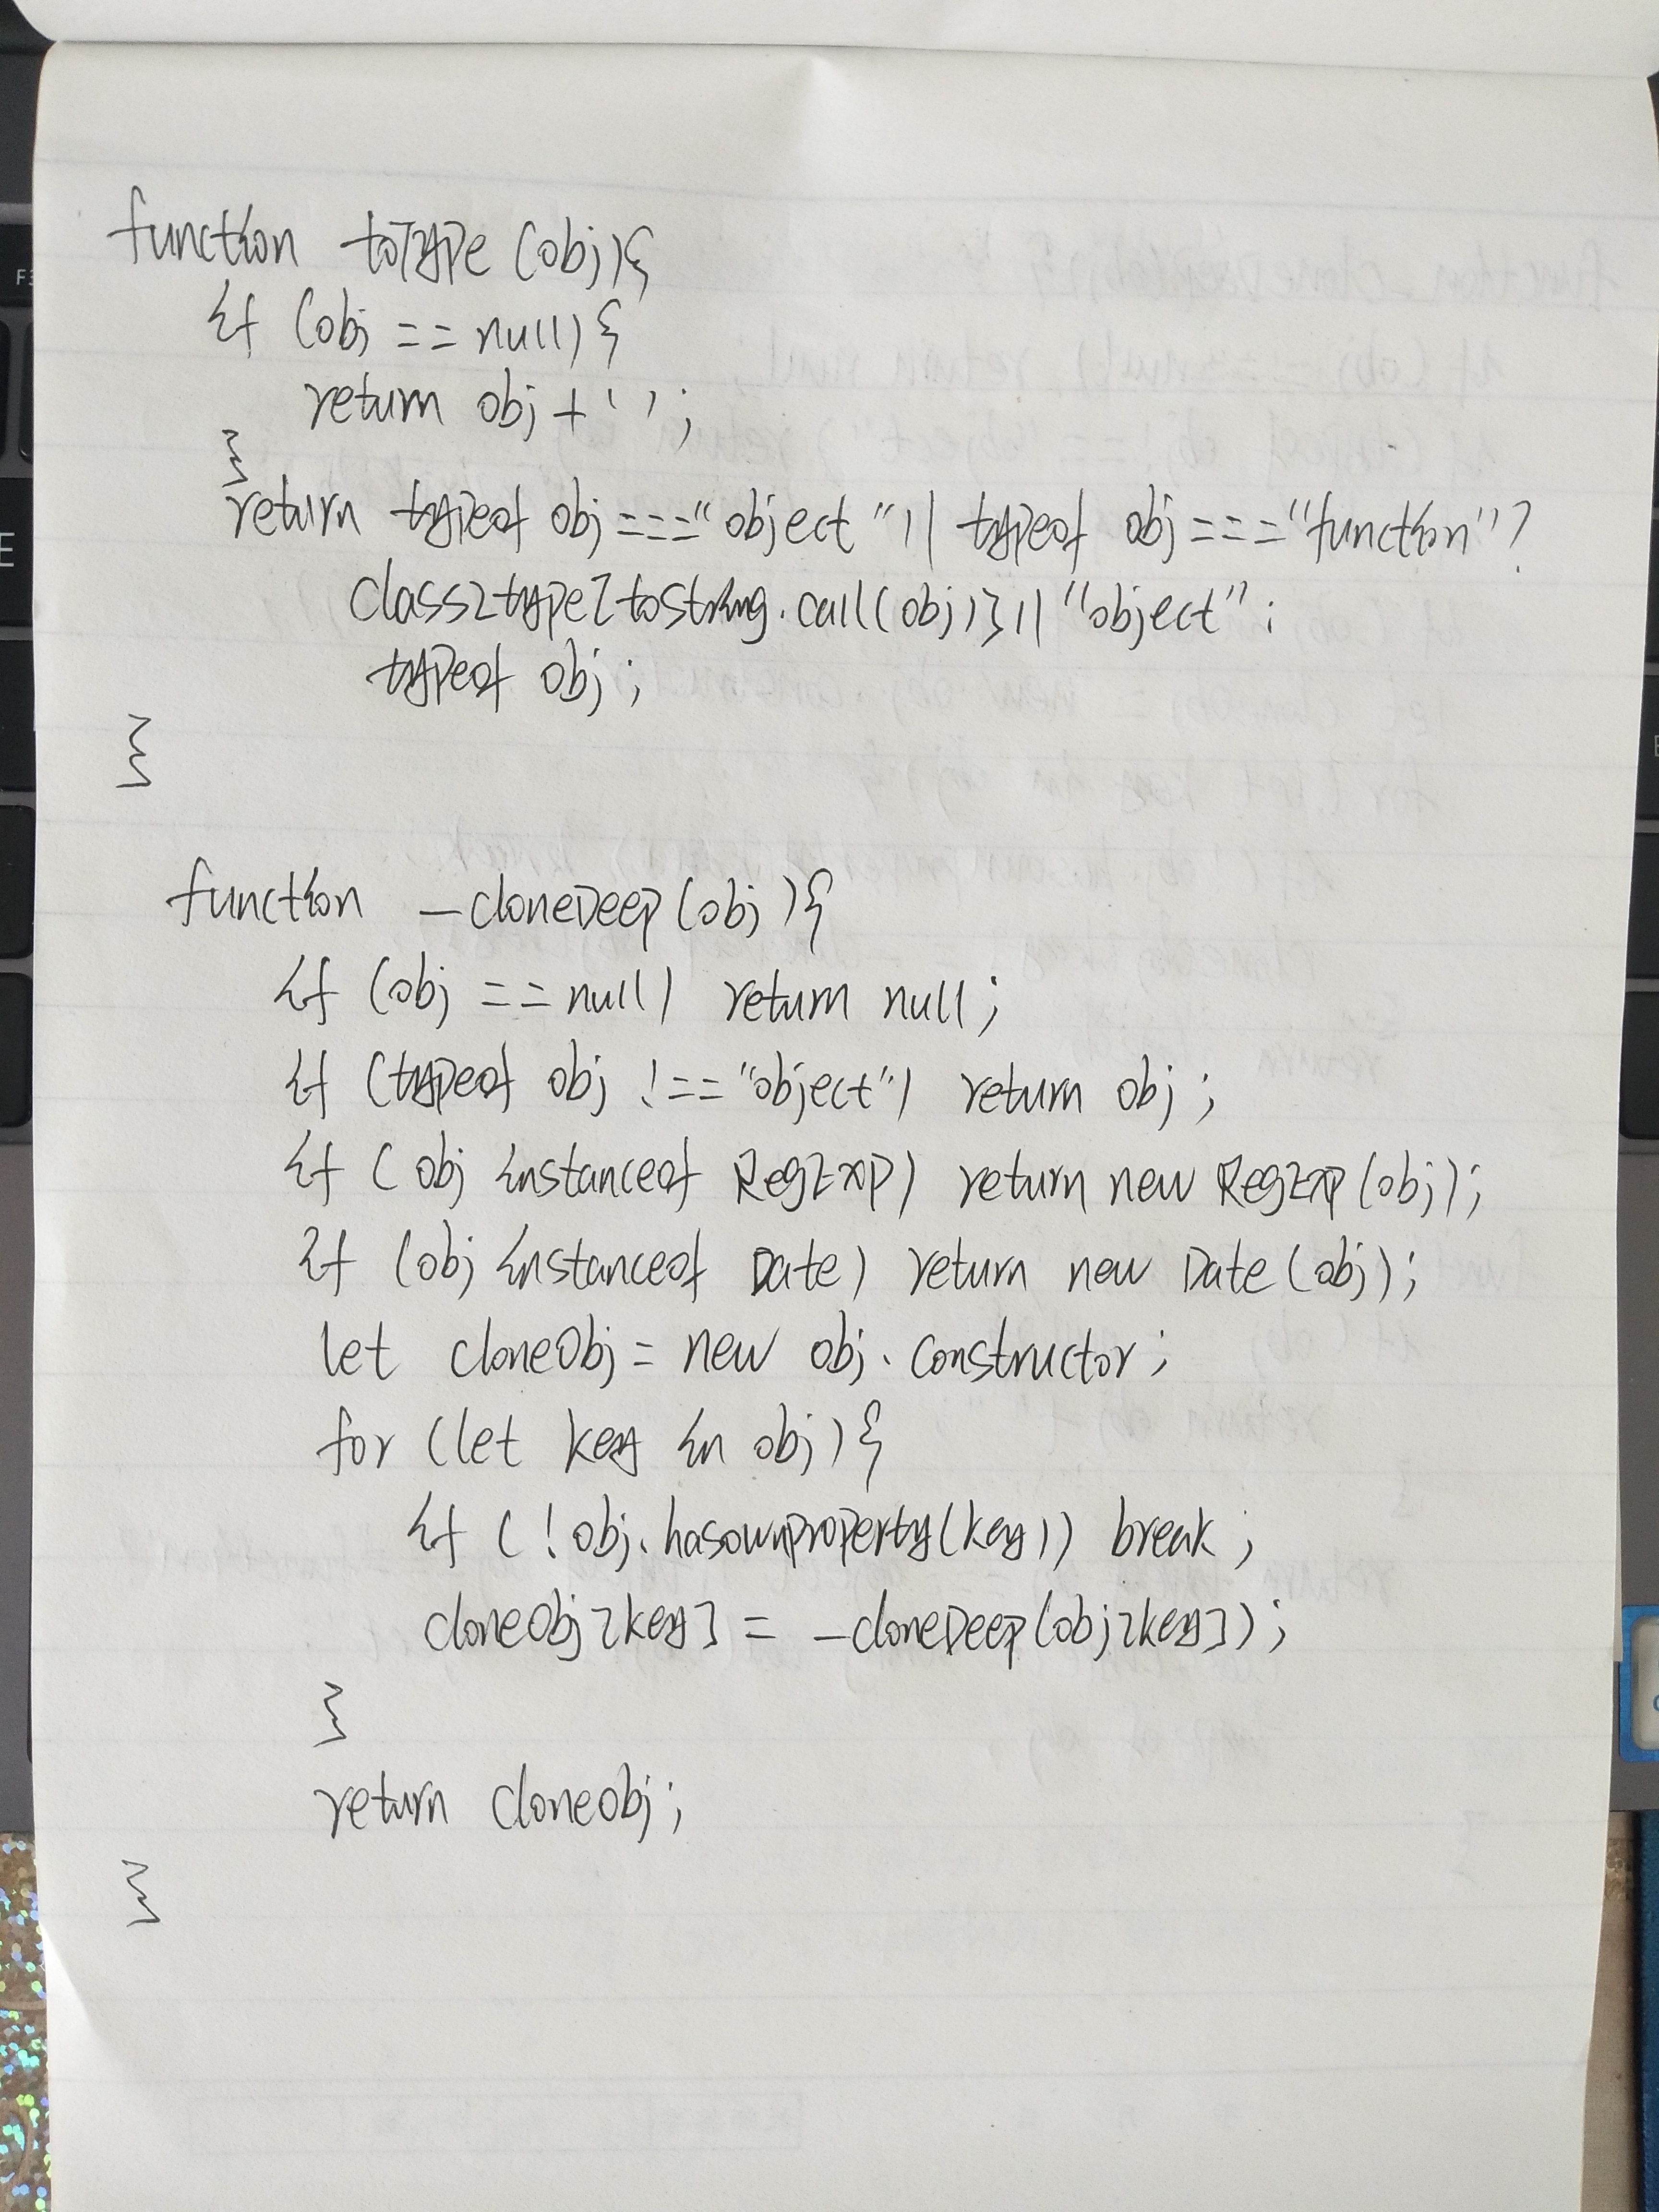 function toType (obj){
if (obj == null){
return obj + '';
}
return typeof obj === "object" || typeof obj === "function" ?
class2type[toString.call(obj)] || "object" :
typeof obj;
}
function _cloneDeep (obj){
if (obj == null) return null;
if (typeof obj !== "object") return obj;
if (obj instanceof RegExp) return new RegExp (obj);
if (obj instanceof Date) return new Date (obj);
let cloneObj = new obj.constructor;
for (let key in obj){
if (!obj.hasownproperty(key)) break;
cloneObj[key] = _cloneDeep (obj[key]);
}
return cloneobj;
}